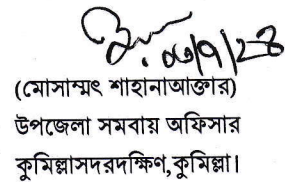 ০৩/৭/২৪
(মোসাম্মৎ শাহানাআক্তার)
উপজেলা সমবায় অফিসার
কুমিল্লাসদরদক্ষিণ,কুমিল্লা।